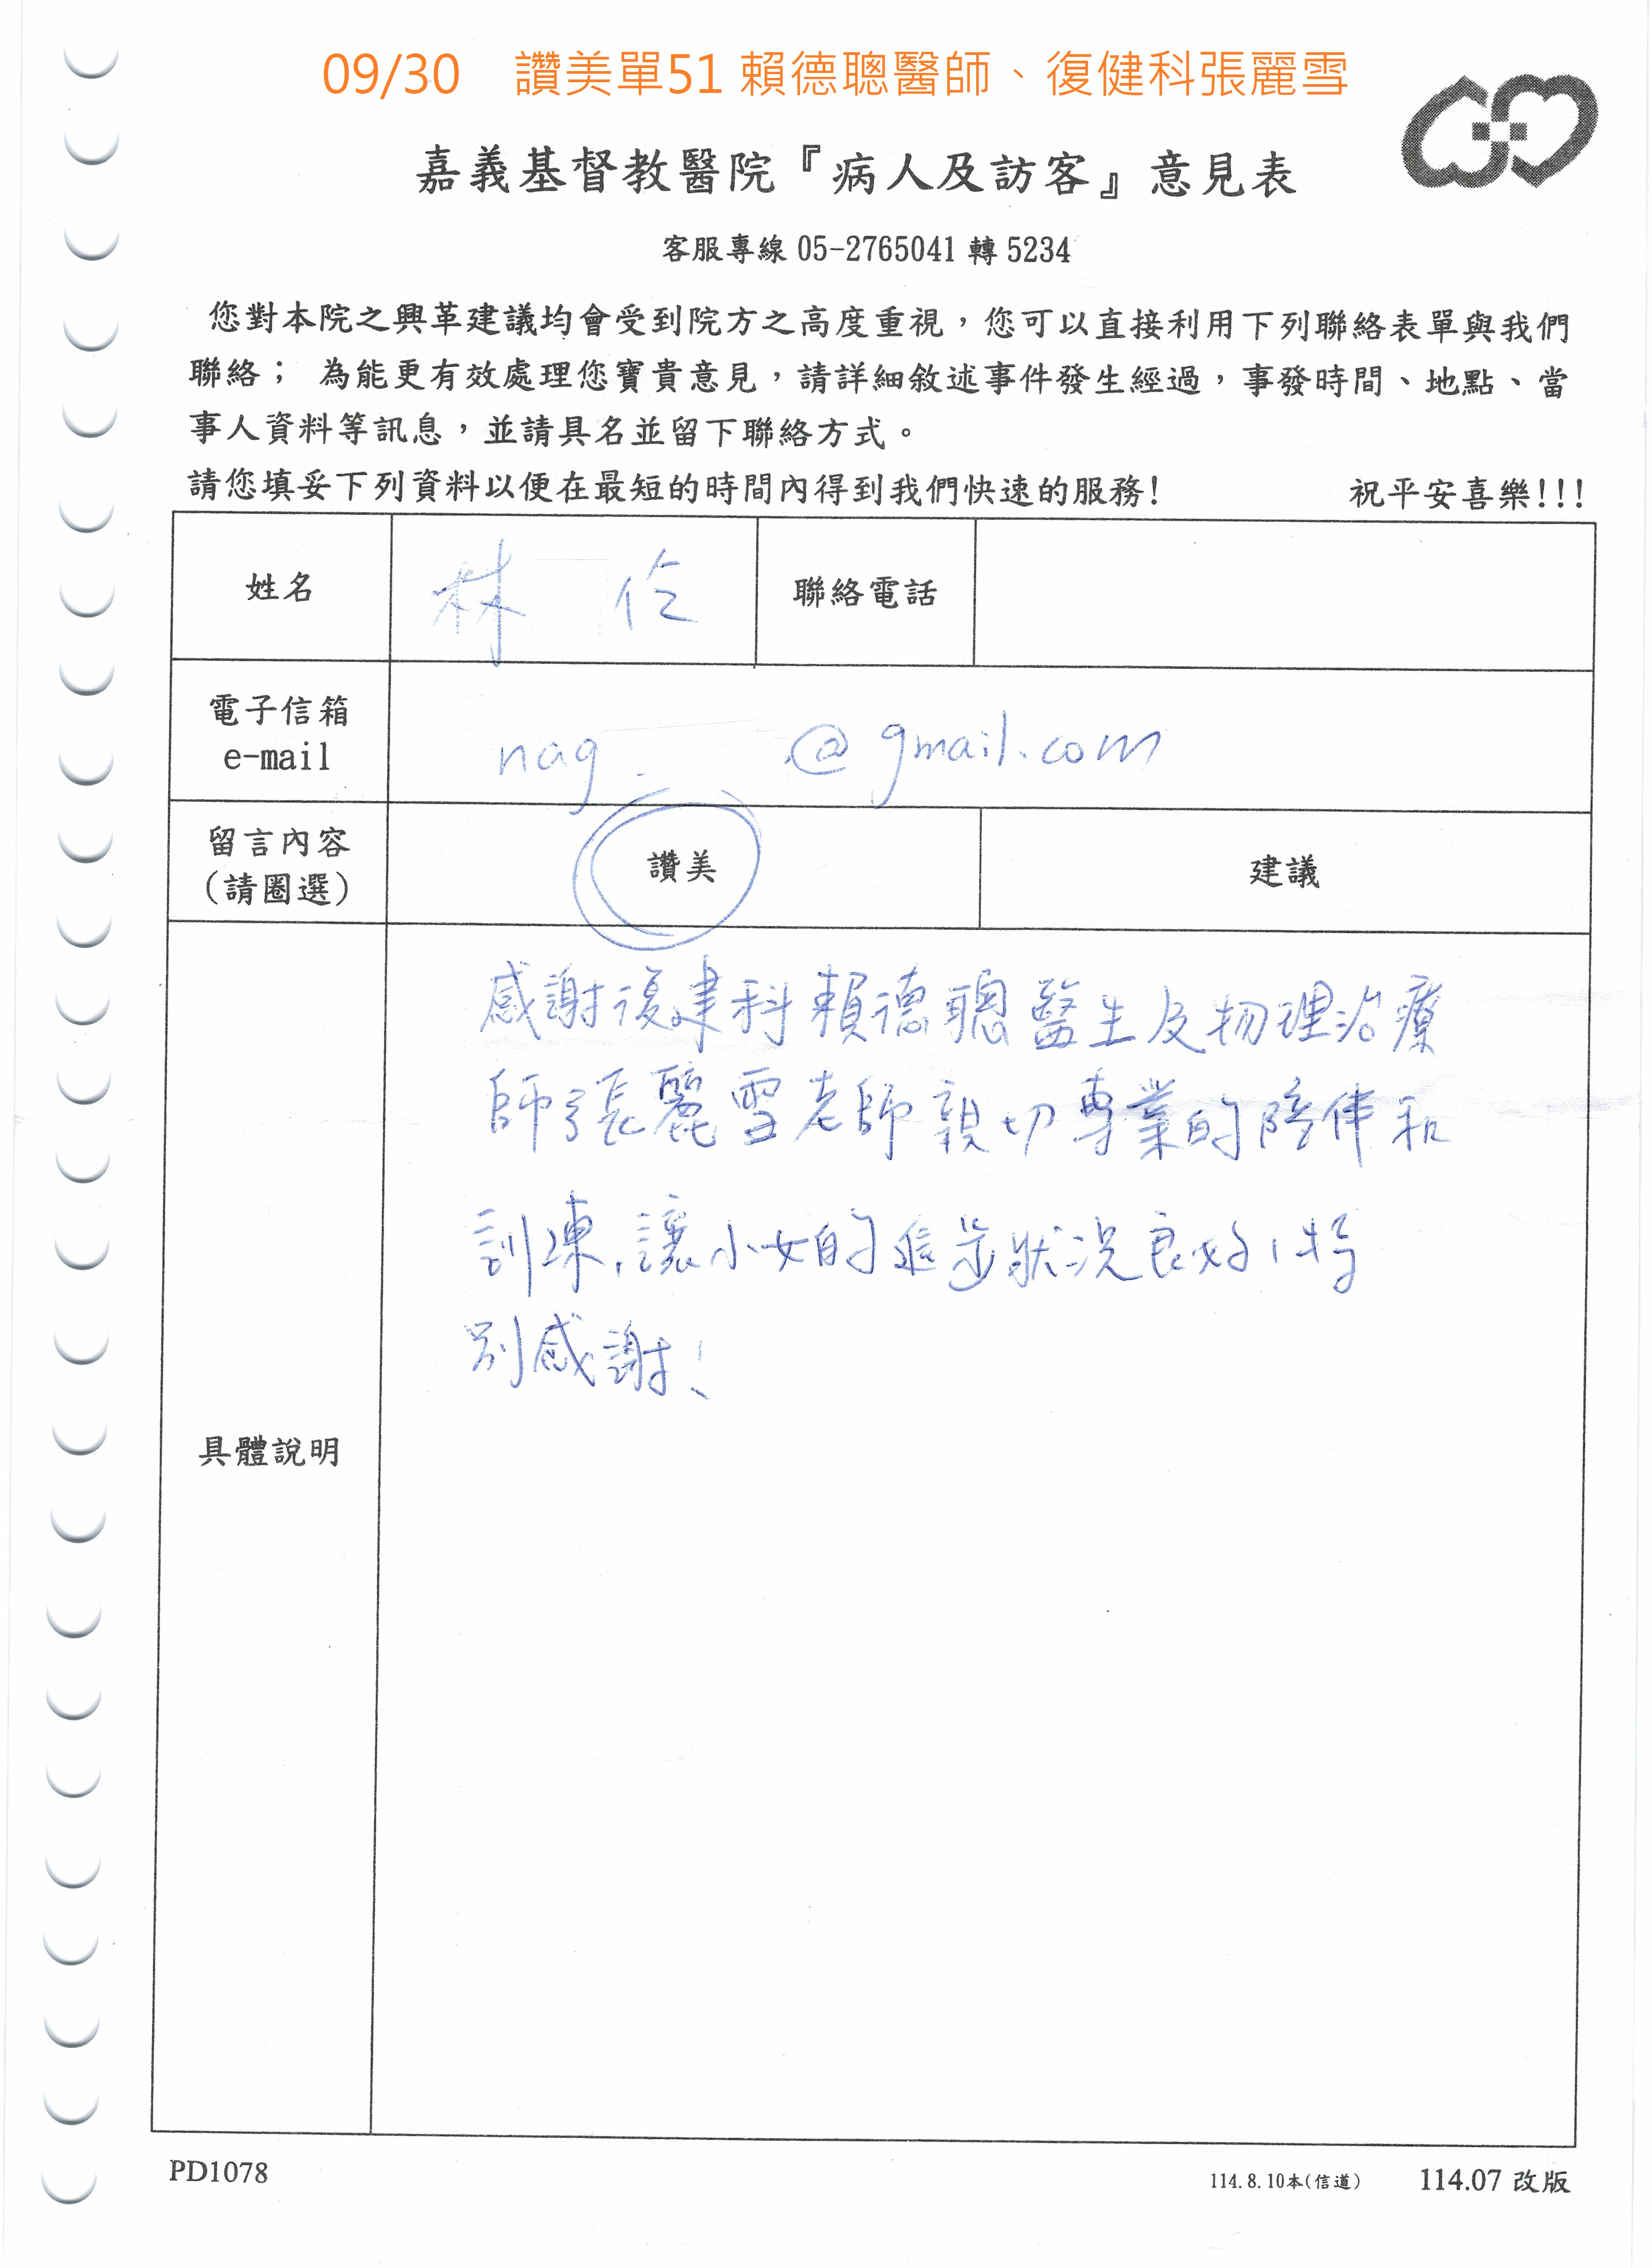 09/30 讚美單51 賴德聰醫師、復健科張麗雪
嘉義基督教醫院『病人及訪客』意見表
客服專線 05-2765041 轉 5234
您對本院之興革建議均會受到院方之高度重視，您可以直接利用下列聯絡表單與我們
聯絡； 為能更有效處理您寶貴意見，請詳細敘述事件發生經過，事發時間、地點、當
事人資料等訊息，並請具名並留下聯絡方式。
請您填妥下列資料以便在最短的時間內得到我們快速的服務! 祝平安喜樂!!!
姓名 林 伶 聯絡電話
電子信箱
e-mail nag @gmail.com
留言內容
(請圈選) 讚美 建議
感謝復健科賴德聰醫生及物理治療
師張麗雪老師親切專業的陪伴和
訓練,讓小女的進步狀況良好,特
別感謝!
具體說明
PD1078 114.8.10本(信道) 114.07 改版